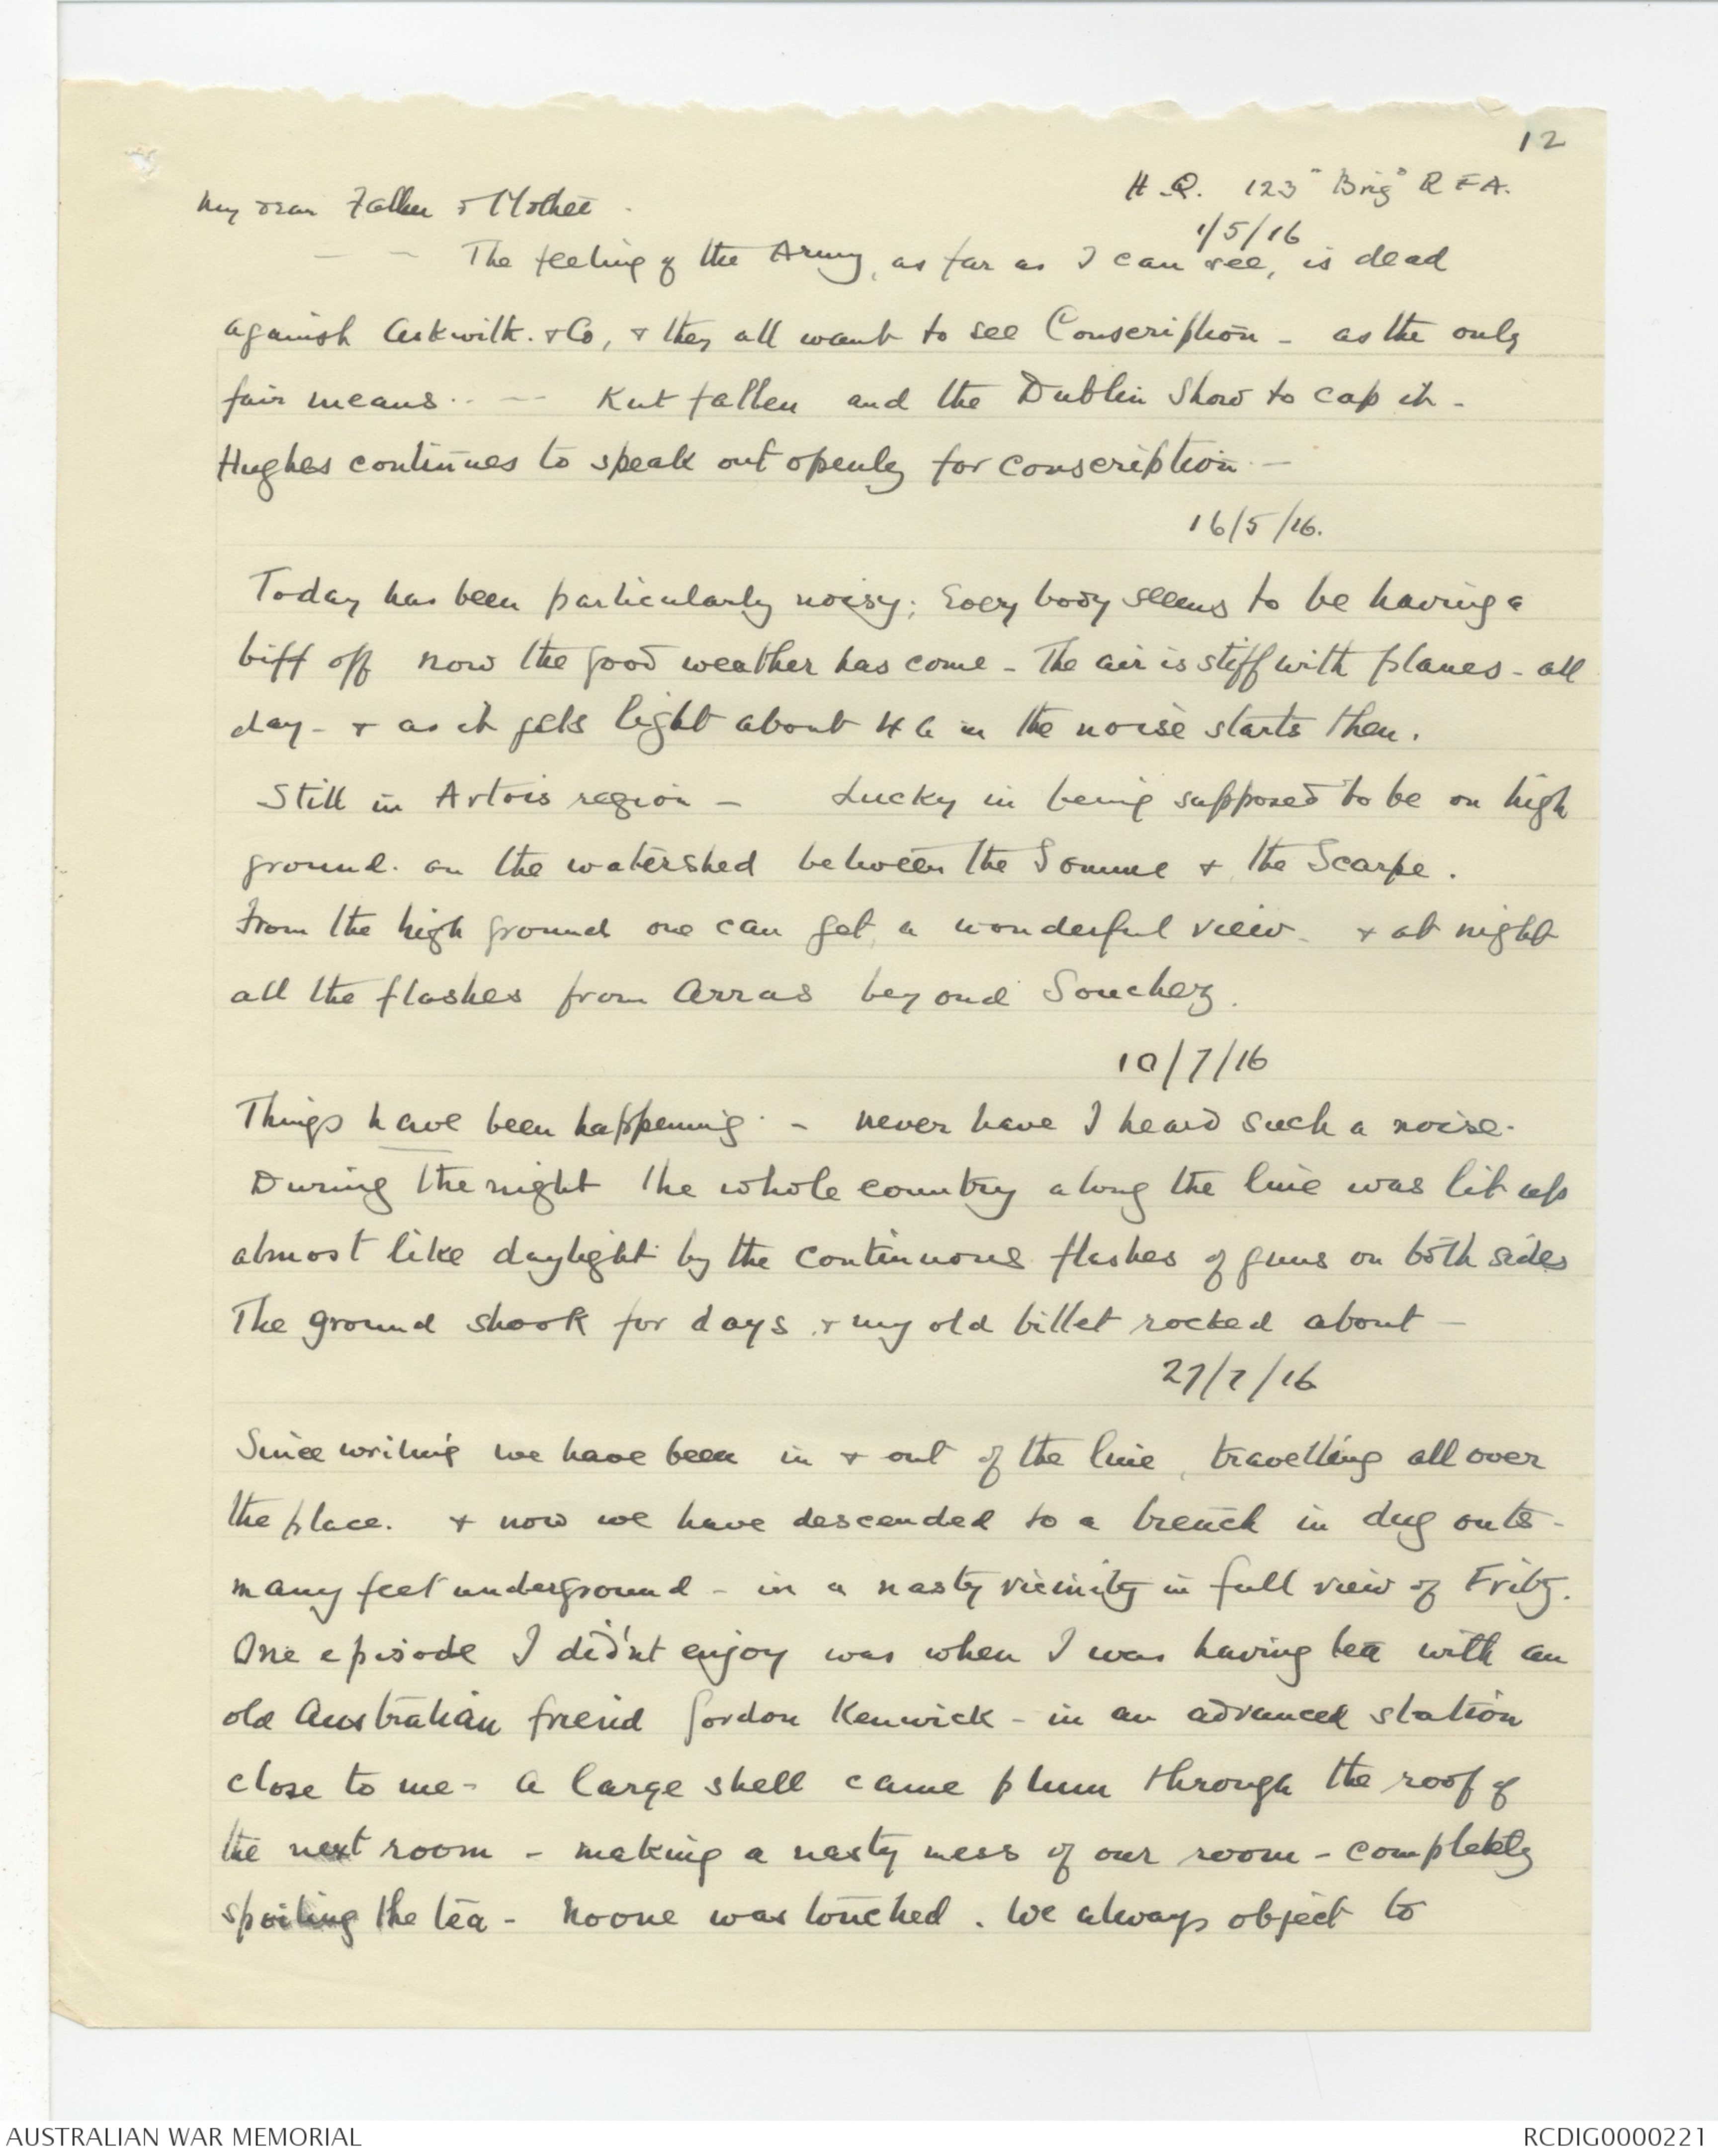 12
H.Q. 123" Brigᵉ R F A.
My dear Father & Mother
1/5/16
— — The feeling of the Army, as far as I can see, is dead
against Askwith. & Co, & they all want to see Conscription - as the only
fair means.. — Kut fallen and the Dublin Show to cap it -
Hughes continues to speak out openly for conscription —
16/5/16.
Today has been particularly noisy; Every body seems to be having a
biff off now the good weather has come - The air is stiff with planes - all
day - & as it gets light about 4 a m the noise starts then.
Still in Artois region - Lucky in being supposed to be on high
ground. on the watershed between the Somme & the Scarpe.
From the high ground one can get a wonderful view. & at night
all the flashes from Arras beyond Souchez.
10/7/16
Things have been happening - never have I heard such a noise.
During the night the whole country along the line was lit up
almost like daylight by the continuous flashes of guns on both sides
The ground shook for days & my old billet rocked about —
27/7/16
Since writing we have been in & out of the line, travelling all over
the place. & now we have descended to a trench in dug outs -
many feet underground - in a nasty vicinity in full view of Fritz.
One episode I did'nt enjoy was when I was having tea with an
old Australian friend Gordon Kenwick - in an advanced station
close to me - a large shell came plum through the roof of
the next room - making a nasty mess of our room - completely
spoiling the tea - Noone was touched. We always object to
AUSTRALIAN WAR MEMORIAL
RCDIG0000221